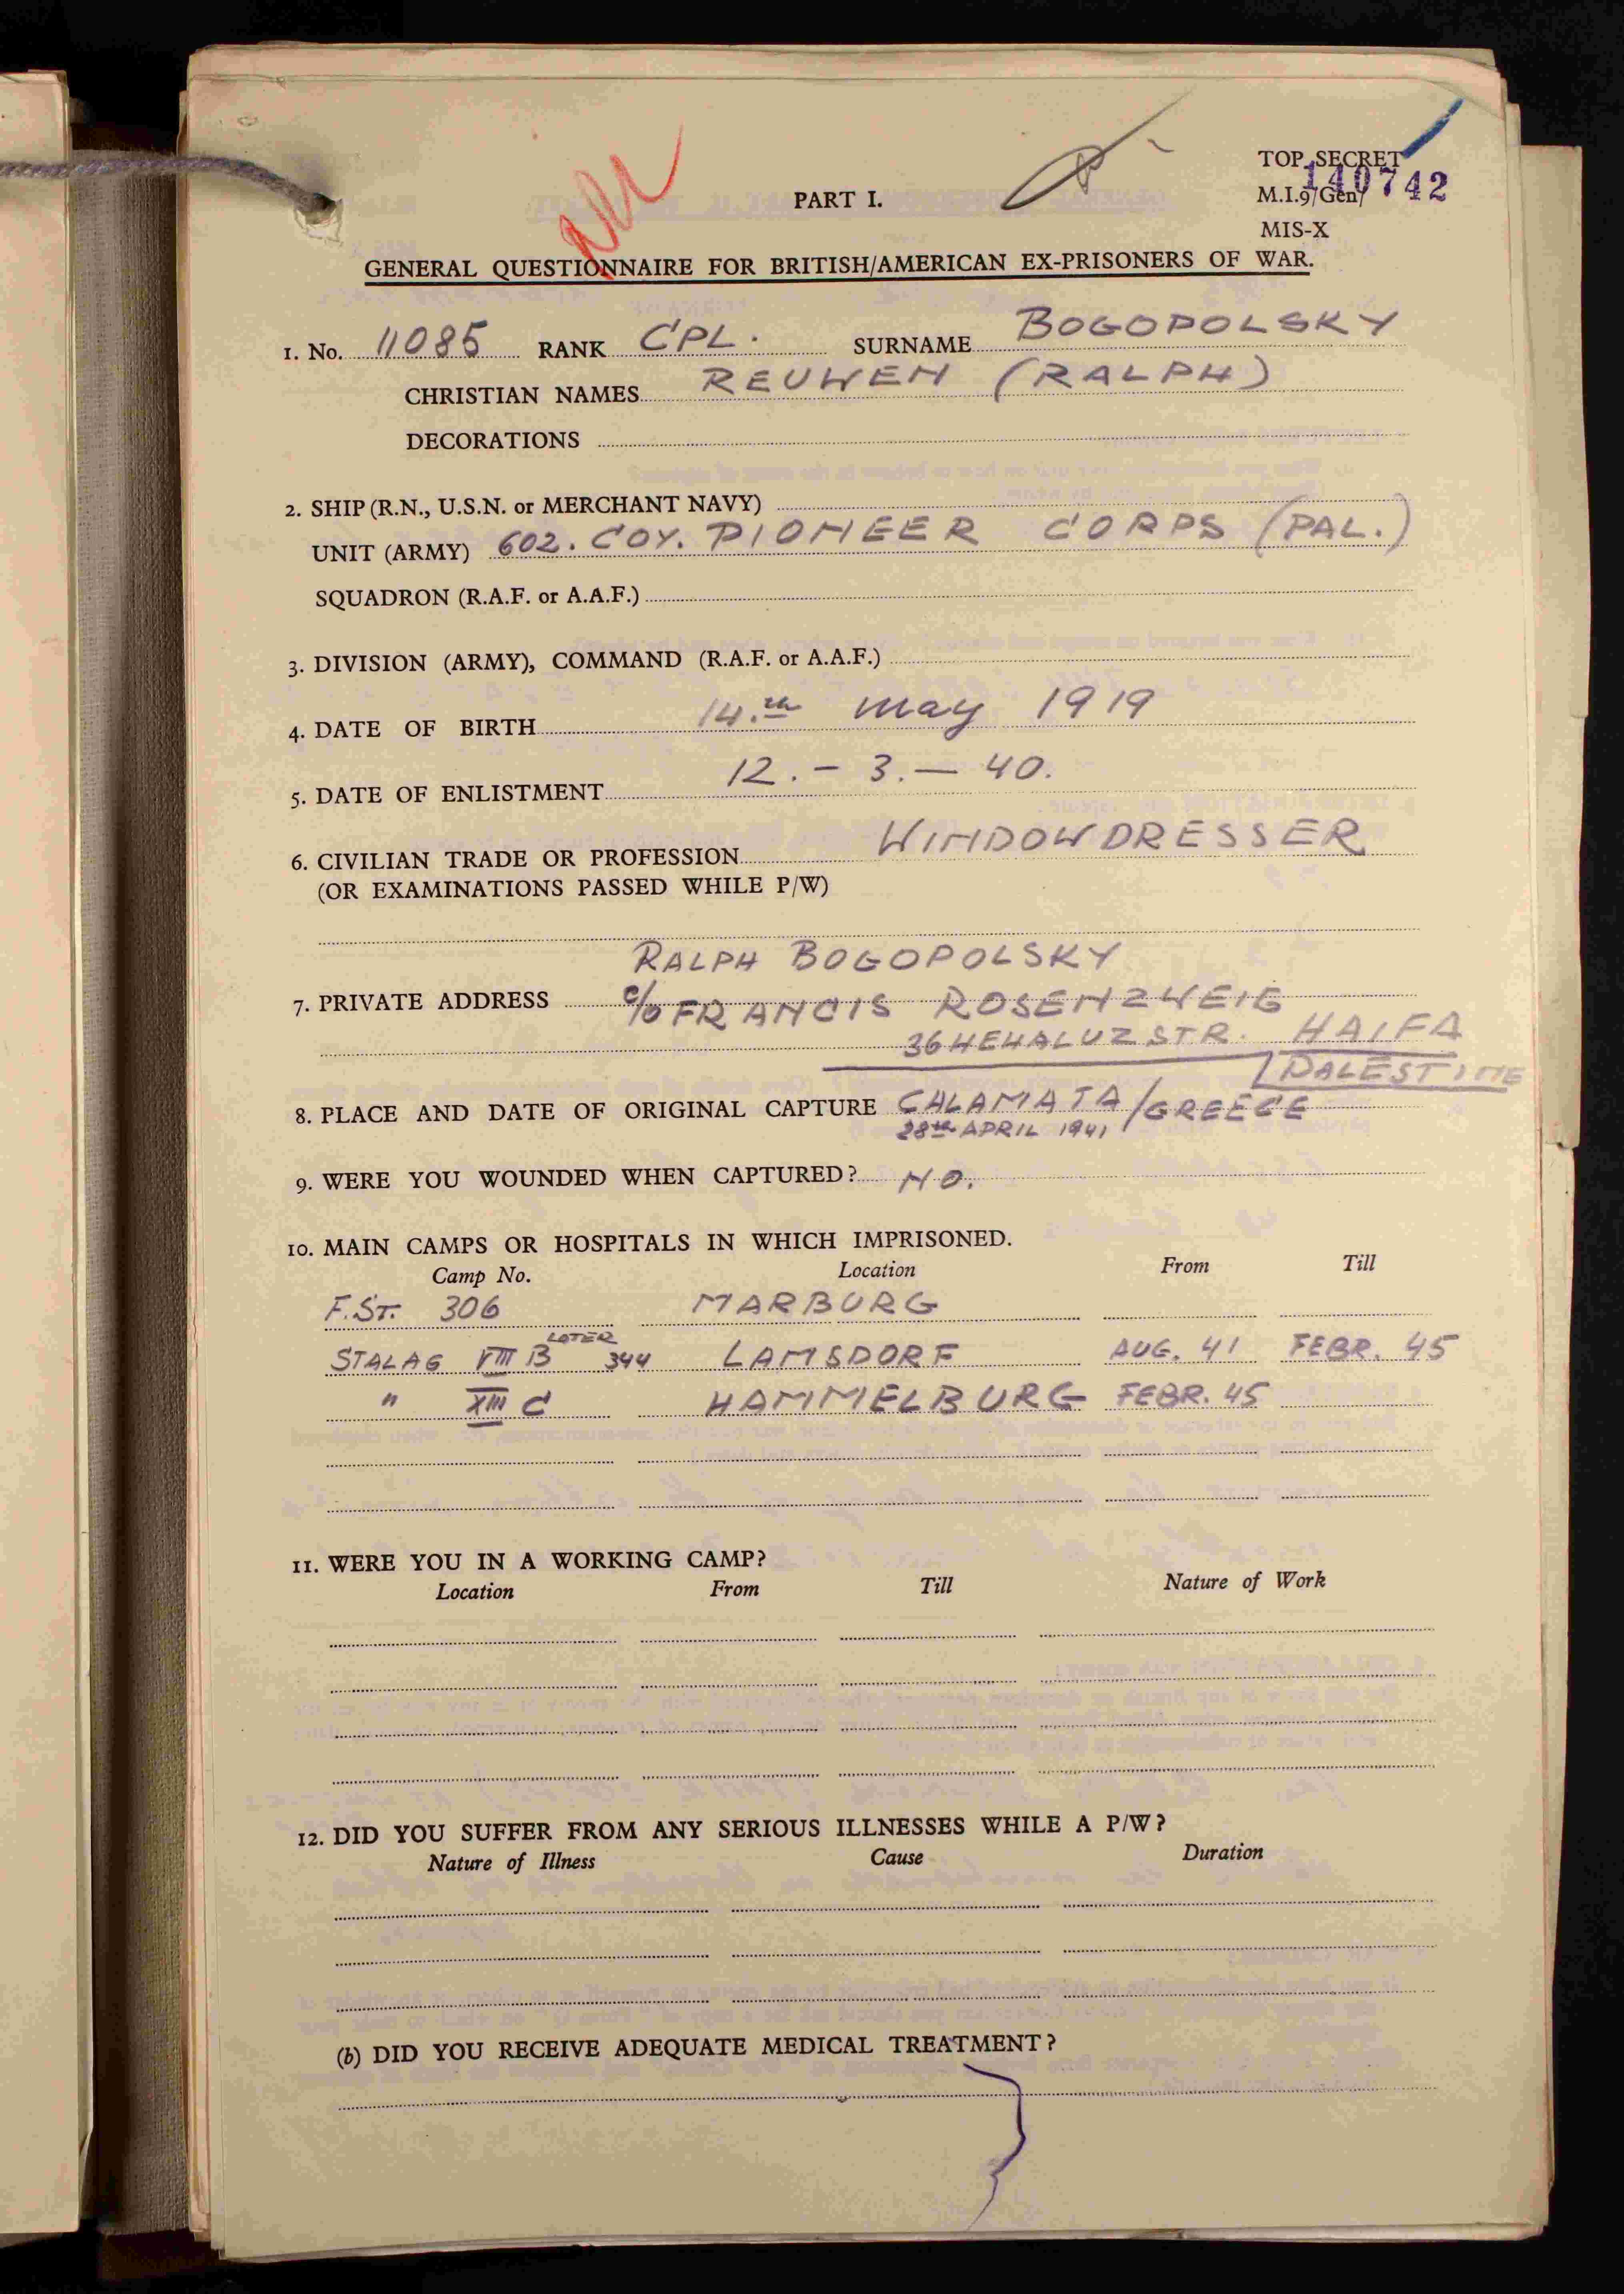 PART I.
TOP SECRET
M.I.9/Gen/ 140742
MIS-X
GENERAL QUESTIONNAIRE FOR BRITISH/AMERICAN EX-PRISONERS OF WAR.
1. No. 11085 RANK CPL. SURNAME BOGOPOLSKY
CHRISTIAN NAMES REUWEN (RALPH)
DECORATIONS
2. SHIP (R.N., U.S.N. or MERCHANT NAVY)
UNIT (ARMY) 602. COY. PIONEER CORPS (PAL.)
SQUADRON (R.A.F. or A.A.F.)
3. DIVISION (ARMY), COMMAND (R.A.F. or A.A.F.)
4. DATE OF BIRTH 14.th May 1919
5. DATE OF ENLISTMENT 12. - 3. - 40.
6. CIVILIAN TRADE OR PROFESSION WINDOWDRESSER
(OR EXAMINATIONS PASSED WHILE P/W)
RALPH BOGOPOLSKY
7. PRIVATE ADDRESS c/o FRANCIS ROSENZWEIG
36 HEHALUZ STR. HAIFA
PALESTINE
8. PLACE AND DATE OF ORIGINAL CAPTURE CALAMATA/GREECE
28th APRIL 1941
9. WERE YOU WOUNDED WHEN CAPTURED? NO.
10. MAIN CAMPS OR HOSPITALS IN WHICH IMPRISONED.
Camp No. Location From Till
F.ST. 306 MARBURG
STALAG VIII B LATER 344 LAMSDORF AUG. 41 FEBR. 45
" XIII C HAMMELBURG FEBR. 45
11. WERE YOU IN A WORKING CAMP?
Location From Till Nature of Work
12. DID YOU SUFFER FROM ANY SERIOUS ILLNESSES WHILE A P/W?
Nature of Illness Cause Duration
(b) DID YOU RECEIVE ADEQUATE MEDICAL TREATMENT?